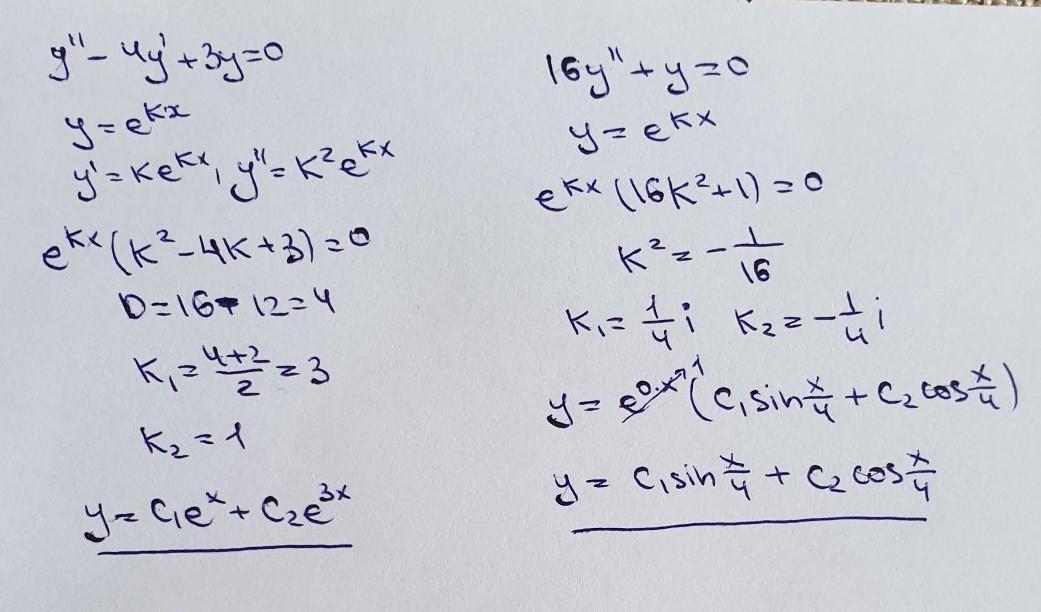 y'' - 4y' + 3y = 0
y = e^{kx}
y' = ke^{kx}, y'' = k²e^{kx}
e^{kx}(k² - 4k + 3) = 0
D = 16 - 12 = 4
K₁ = \frac{4+2}{2} = 3
K₂ = 1
y = C₁e^{x} + C₂e^{3x}
16y'' + y = 0
y = e^{kx}
e^{kx}(16k² + 1) = 0
K² = -\frac{1}{16}
K₁ = \frac{1}{4}i K₂ = -\frac{1}{4}i
y = e^{0·x}→1 (C₁ sin \frac{x}{4} + C₂ cos \frac{x}{4})
y = C₁ sin \frac{x}{4} + C₂ cos \frac{x}{4}